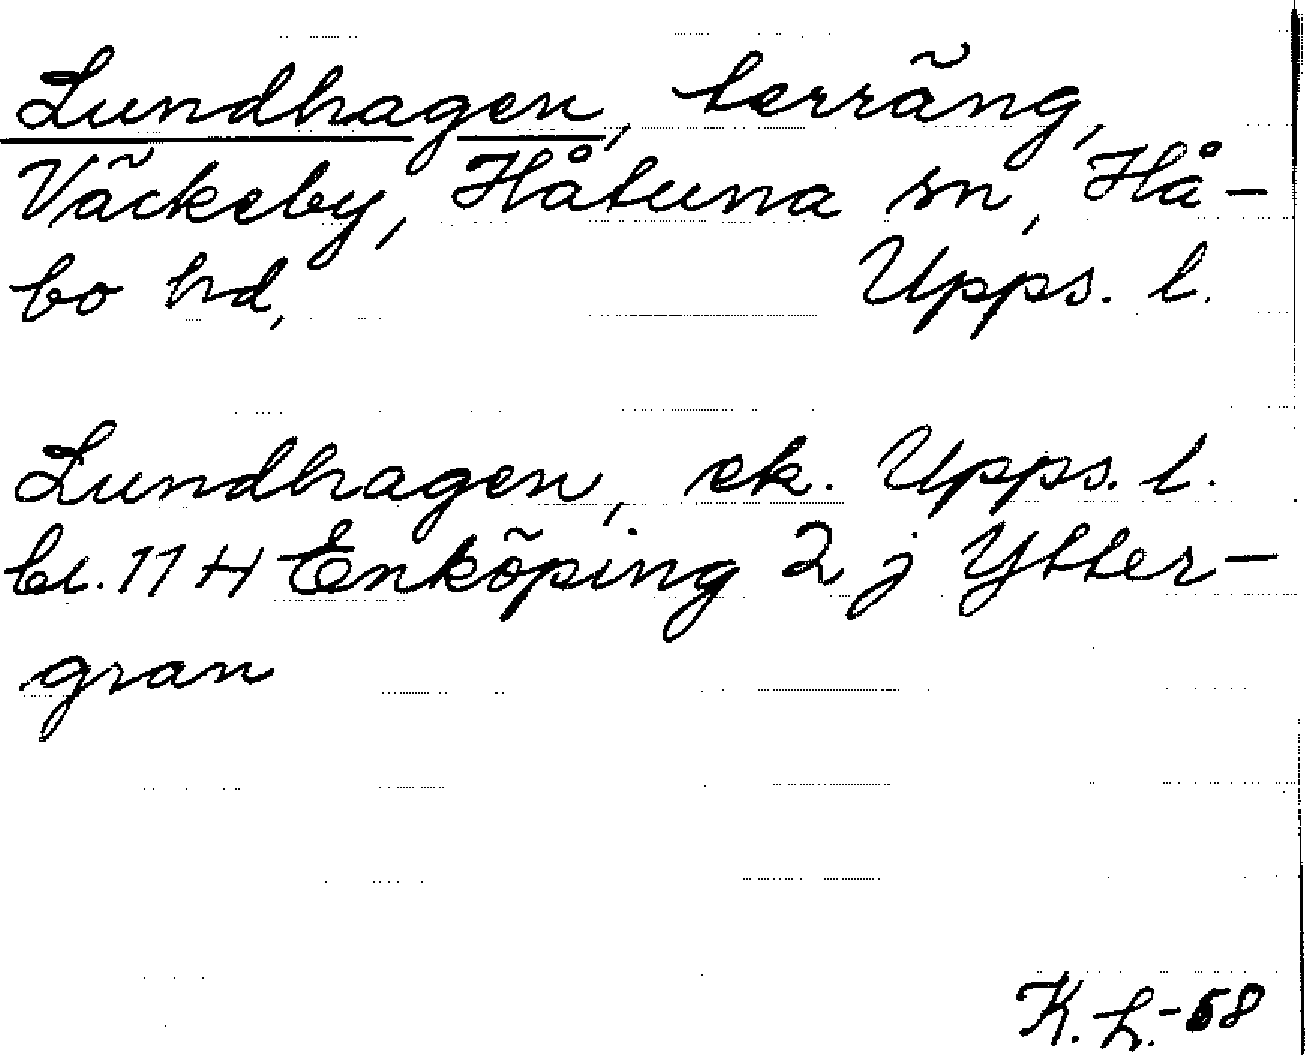 Lundhagen, terräng,
Väckeby, Håtuna sn, Hå-
bo hd, Upps. l.
Lundhagen, ek. Upps. l.
bl. 11 H Enköping 2 j Ytter-
gran
K. L. -58